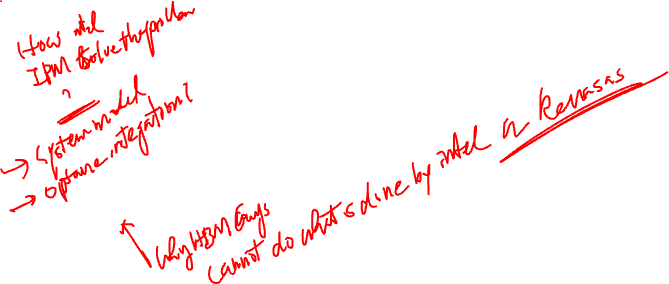 How intel
IPM solve the problem
?
→ System model,
→ Optane integration?
Why HBM Guys
cannot do what is done by intel or Renasas